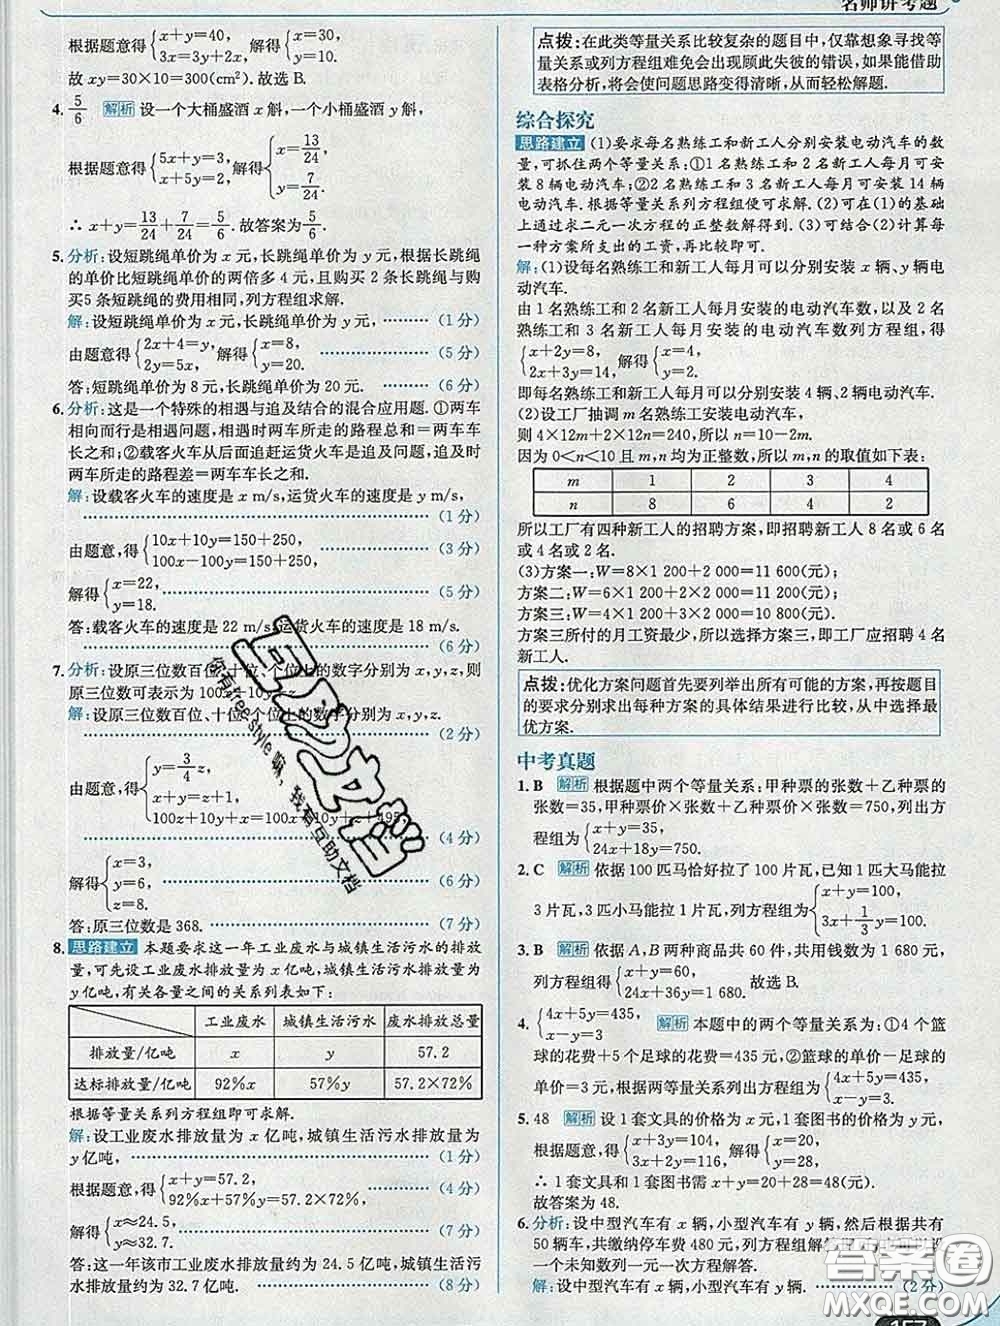 名师讲考题
根据题意得{x+y=40, 3x=3y+2x. 解得{x=30, y=10.
故 xy=30×10=300(cm²). 故选 B.
4. 5/6 解析 设一个大桶盛酒 x 斛,一个小桶盛酒 y 斛,
根据题意得{5x+y=3, x+5y=2, 解得{x=13/24, y=7/24.
∴ x+y=13/24+7/24=5/6. 故答案为5/6.
5. 分析:设短跳绳单价为 x 元,长跳绳单价为 y 元,根据长跳绳
的单价比短跳绳单价的两倍多 4 元,且购买 2 条长跳绳与购
买5 条短跳绳的费用相同,列方程组求解.
解:设短跳绳单价为 x 元,长跳绳单价为 y 元, ……… (1 分)
由题意得{2x+4=y, 2y=5x, 解得{x=8, y=20. ……… (5 分)
答:短跳绳单价为 8 元,长跳绳单价为 20 元. ……… (6 分)
6. 分析:这是一个特殊的相遇与追及结合的混合应用题.①两车
相向而行是相遇问题,相遇时两车所走的路程总和=两车车
长之和;②载客火车从后面追赶运货火车是追及问题,追及时
两车所走的路程差=两车车长之和.
解:设载客火车的速度是 x m/s,运货火车的速度是 y m/s,
……… (1 分)
由题意,得{10x+10y=150+250, 100x-100y=150+250, ……… (3 分)
解得{x=22, y=18. ……… (5 分)
答:载客火车的速度是 22 m/s,运货火车的速度是 18 m/s.
……… (6 分)
7. 分析:设原三位数百位、十位、个位上的数字分别为 x,y,z,则
原三位数可表示为 100x+10y+z.
解:设原三位数百位、十位、个位上的数字分别为 x,y,z.
……… (2 分)
由题意,得{y=3/4 z, x+y=z+1, 100z+10y+x=100x+10y+z+495. ……… (4 分)
解得{x=3, y=6, z=8. ……… (6 分)
答:原三位数是 368. ……… (7 分)
8. 思路建立 本题要求这一年工业废水与城镇生活污水的排放
量,可先设工业废水排放量为 x 亿吨,城镇生活污水排放量为
y 亿吨,有关各量之间的关系列表如下:
工业废水 城镇生活污水 废水排放总量
排放量/亿吨 x y 57.2
达标排放量/亿吨 92%x 57%y 57.2×72%
根据等量关系列方程组即可求解.
解:设工业废水排放量为 x 亿吨,城镇生活污水排放量为
y 亿吨, ……… (1 分)
根据题意,得{x+y=57.2, 92%x+57%y=57.2×72%, ……… (4 分)
解得{x≈24.5, y≈32.7. ……… (7 分)
答:这一年该市工业废水排放量约为 24.5 亿吨,城镇生活污
水排放量约为 32.7 亿吨. ……… (8 分)
点拨:在此类等量关系比较复杂的题目中,仅靠想象寻找等
量关系或列方程组难免会出现顾此失彼的错误,如果能借助
表格分析,将会使问题思路变得清晰,从而轻松解题.
综合探究
思路建立 (1)要求每名熟练工和新工人分别安装电动汽车的数
量,可抓住两个等量关系:①1 名熟练工和 2 名新工人每月可安
装 8 辆电动汽车;②2 名熟练工和 3 名新工人每月可安装 14 辆
电动汽车.根据等量关系列方程组便可求解.(2)可在(1)的基础
上通过求二元一次方程的正整数解得到.(3)可结合(2)计算每
一种方案所支出的工资,再比较即可.
解:(1)设每名熟练工和新工人每月可以分别安装 x 辆、y 辆电
动汽车.
由 1 名熟练工和 2 名新工人每月安装的电动汽车数,以及 2 名
熟练工和 3 名新工人每月安装的电动汽车数列方程组,得
{x+2y=8, 2x+3y=14, 解得{x=4, y=2.
即每名熟练工和新工人每月可以分别安装 4 辆、2 辆电动汽车.
(2)设工厂抽调 m 名熟练工安装电动汽车,
则 4×12m+2×12n=240,所以 n=10-2m.
因为 0<n<10 且 m,n 均为正整数,所以 m,n 的取值如下表:
m 1 2 3 4
n 8 6 4 2
所以工厂有四种新工人的招聘方案,即招聘新工人 8 名或 6 名
或 4 名或 2 名.
(3)方案一:W=8×1 200+2 000=11 600(元);
方案二:W=6×1 200+2×2 000=11 200(元);
方案三:W=4×1 200+3×2 000=10 800(元).
方案三所付的月工资最少,所以选择方案三,即工厂应招聘 4 名
新工人.
点拨:优化方案问题首先要列举出所有可能的方案,再按题目
的要求分别求出每种方案的具体结果进行比较,从中选择最
优方案.
中考真题
1. B 解析 根据题中两个等量关系:甲种票的张数+乙种票的
张数=35,甲种票价×张数+乙种票价×张数=750,列出方
程组为{x+y=35, 24x+18y=750.
2. C 解析 依据 100 匹马恰好拉了 100 片瓦,已知 1 匹大马能拉
3 片瓦,3 匹小马能拉 1 片瓦,列方程组为{x+y=100, 3x+1/3 y=100.
3. B 解析 依据 A,B 两种商品共 60 件,共用钱数为 1 680 元,
列方程组得{x+y=60, 24x+36y=1 680. 故选 B.
4. {4x+5y=435, x-y=3. 解析 本题中的两个等量关系为:①4 个篮
球的花费+5 个足球的花费=435 元,②篮球的单价-足球的单
价=3 元,根据两等量关系列出方程组为{4x+5y=435, x-y=3.
5. 48 解析 设 1 套文具的价格为 x 元,1 套图书的价格为 y 元,
根据题意,得{x+3y=104, 3x+2y=116, 解得{x=20, y=28,
∴ 1 套文具和 1 套图书需 x+y=20+28=48(元).
故答案为 48.
6. 分析:设中型汽车有 x 辆,小型汽车有 y 辆,然后根据共有
50 辆车,共缴纳停车费 480 元,列方程组解答
一个未知数列一元一次方程解答.
解:设中型汽车有 x 辆,小型汽车有 y 辆. ……… (2 分)
157
你有free style嘛,我有互助文档
答案圈
MXQE.COM